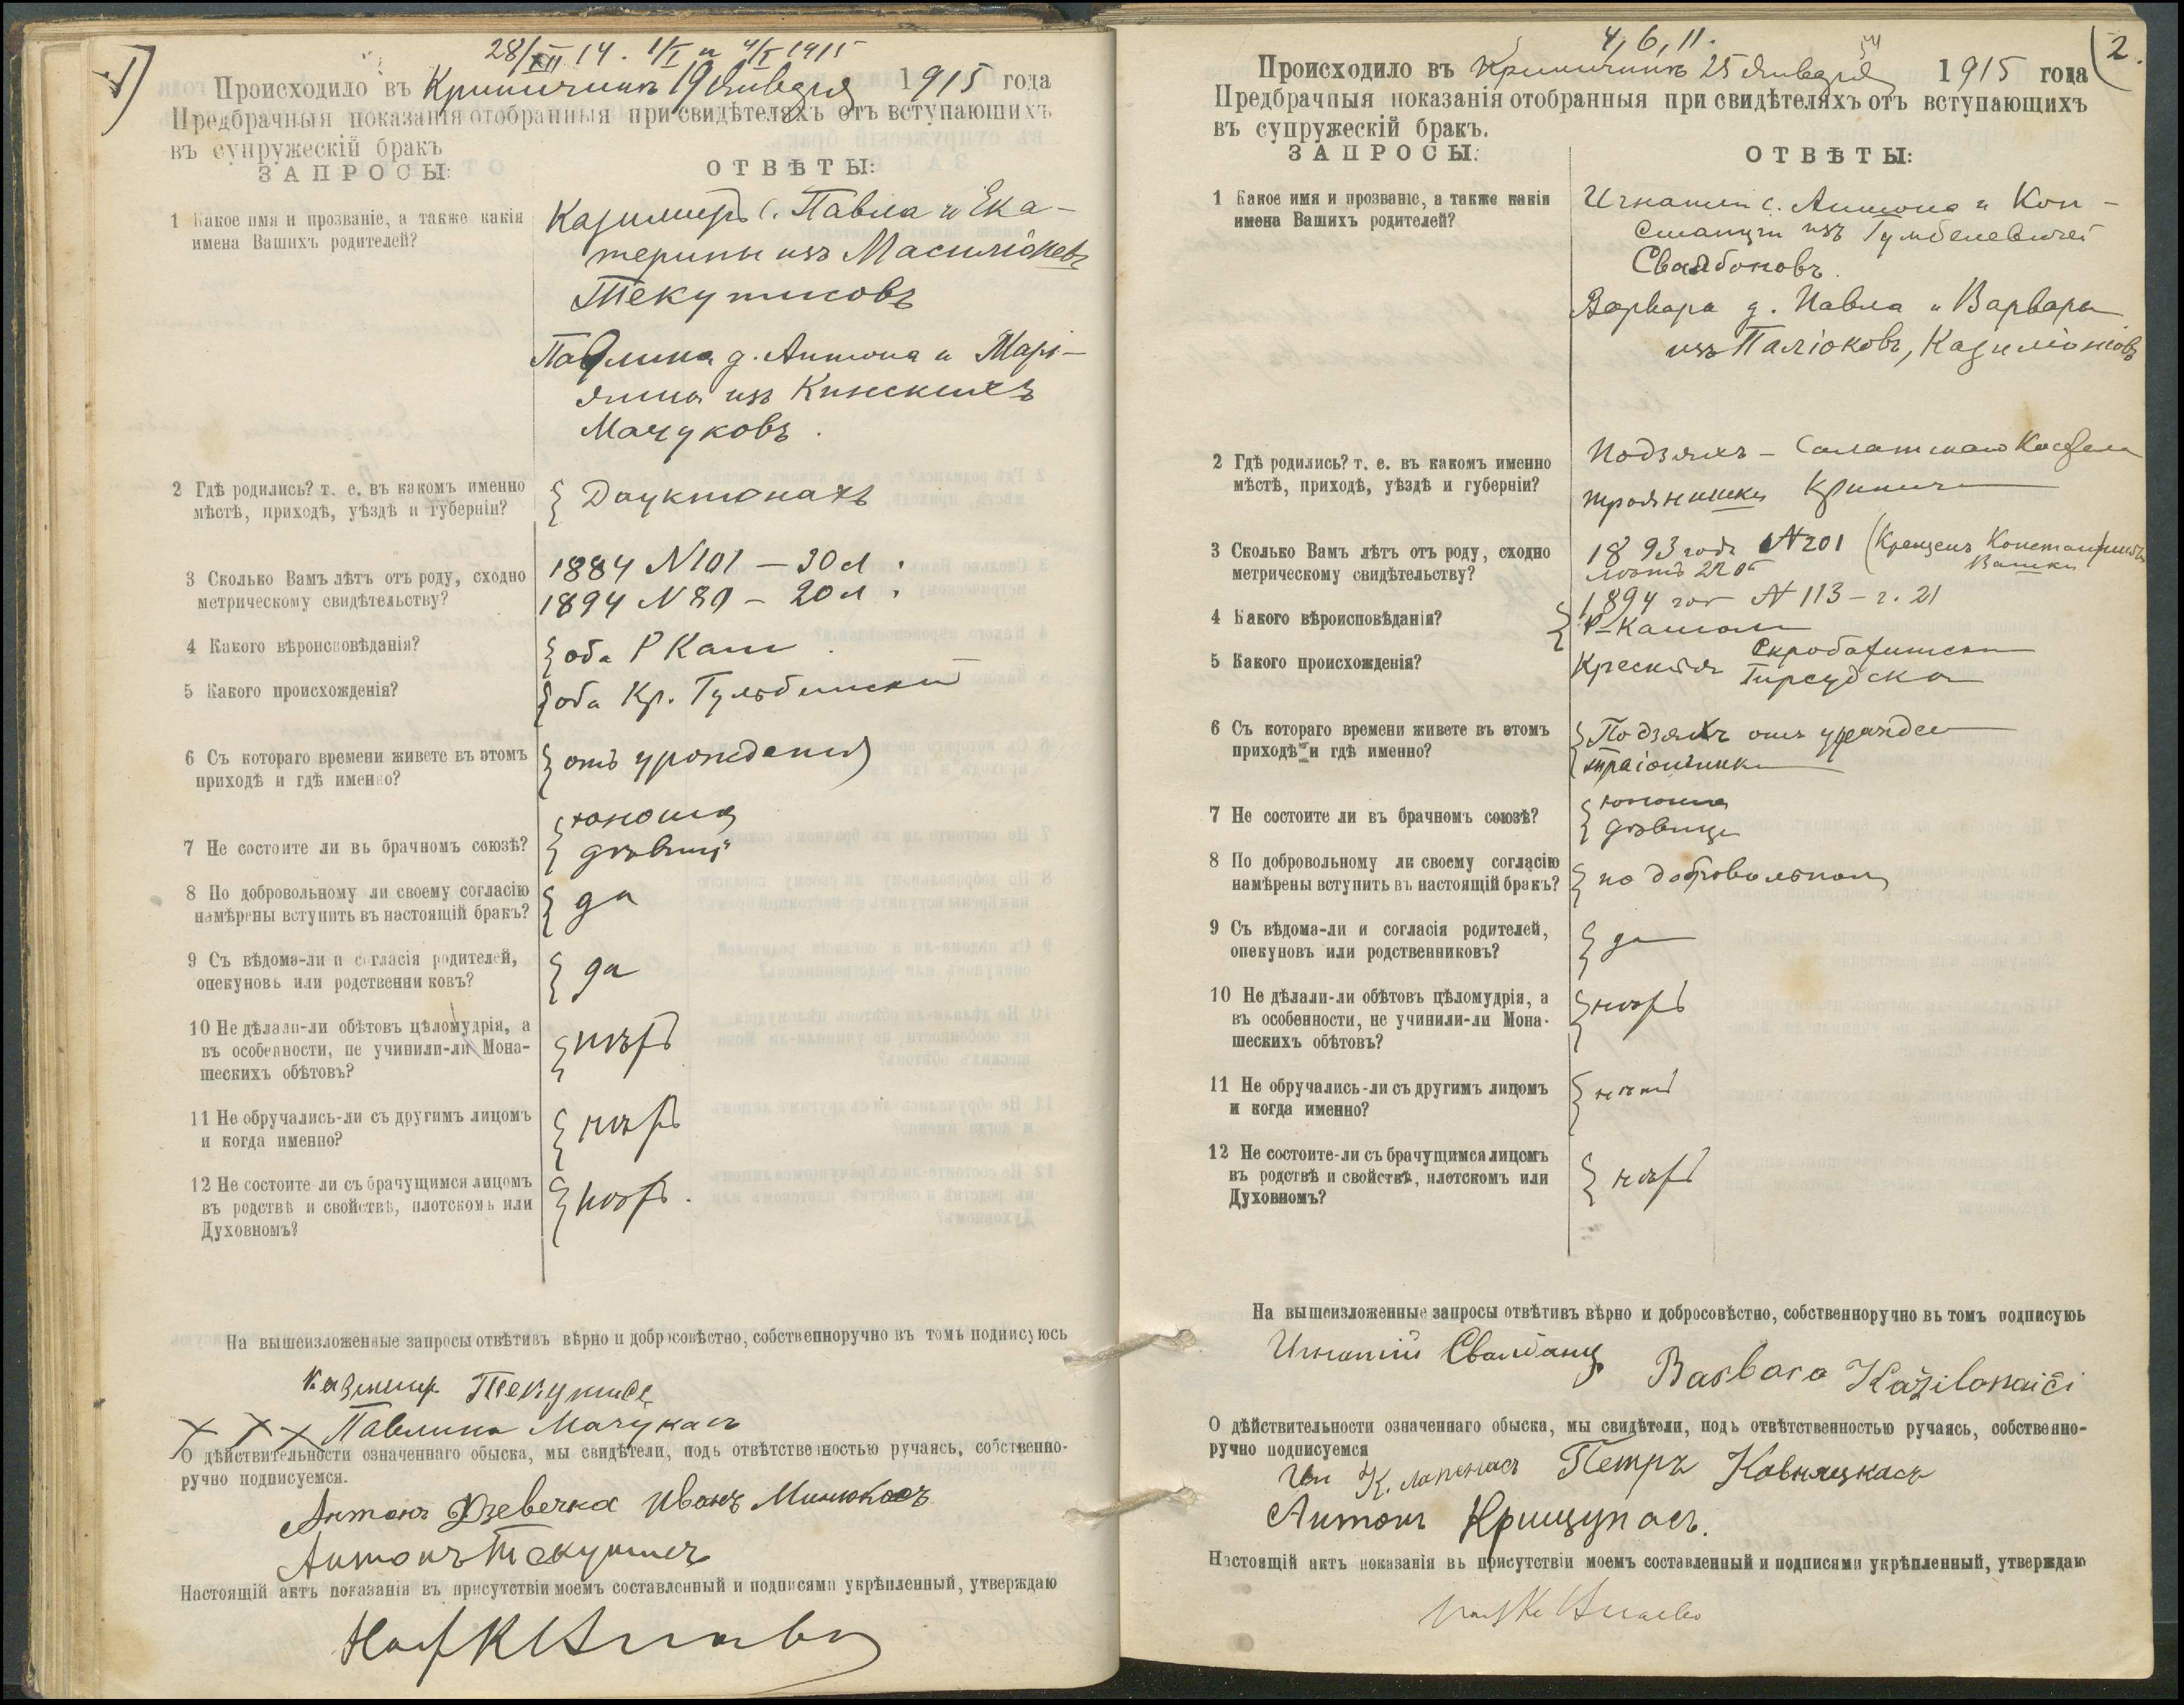 1)
28/XII 14. 1/I и 4/I 1915
Происходило въ Криничинъ 19 Января 1915 года
Предбрачныя показанія отобранныя при свидѣтеляхъ отъ вступающихъ
въ супружескій бракъ
ЗАПРОСЫ: ОТВѢТЫ:
1 Какое имя и прозваніе, а также какія
имена Вашихъ родителей?
Казимиръ с. Павла и Ека-
терины изъ Масиліоневъ
Текутисовъ
Павлина д. Антона и Марі-
янны изъ Кинскихъ
Мачуковъ.
2 Гдѣ родились? т. е. въ какомъ именно
мѣстѣ, приходѣ, уѣздѣ и губерніи?
Дауктонахъ
3 Сколько Вамъ лѣтъ отъ роду, сходно
метрическому свидѣтельству?
1884 N101 — 30 л.
1894 N89 — 20 л.
4 Какого вѣроисповѣданія?
оба Р Кат
5 Какого происхожденія?
оба Кр. Гульбинской
6 Съ котораго времени живете въ этомъ
приходѣ и гдѣ именно?
отъ урожденія
7 Не состоите ли въ брачномъ союзѣ?
юноша
дѣвица
8 По добровольному ли своему согласію
намѣрены вступить въ настоящій бракъ?
да
9 Съ вѣдома-ли и согласія родителей,
опекуновъ или родственни ковъ?
да
10 Не дѣлали-ли обѣтовъ цѣломудрія, а
въ особенности, не учинили-ли Мона-
шескихъ обѣтовъ?
нѣтъ
11 Не обручались-ли съ другимъ лицомъ
и когда именно?
нѣтъ
12 Не состоите-ли съ брачущимся лицомъ
въ родствѣ и свойствѣ, плотскомъ или
Духовномъ?
нѣтъ.
На вышеизложенные запросы отвѣтивъ вѣрно и добросовѣстно, собственноручно въ томъ подписуюсь
Казимир Текутисъ
X X X Павлина Мачукасъ
О дѣйствительности означеннаго обыска, мы свидѣтели, подъ отвѣтственностью ручаясь, собственно-
ручно подписуемся.
Антонъ Дзевечка Иванъ Минюкасъ
Антонъ Текутисъ
Настоящій актъ показанія въ присутствіи моемъ составленный и подписями укрѣпленный, утверждаю
(2.
4, 6, 11.
Происходило въ Криничинъ 25 Января 1915 года
Предбрачныя показанія отобранныя при свидѣтеляхъ отъ вступающихъ
въ супружескій бракъ.
ЗАПРОСЫ: ОТВѢТЫ:
1 Какое имя и прозваніе, а также какія
имена Вашихъ родителей?
Игнатій с. Антона и Кон-
станціи изъ Гумбелевичей
Свалбоновъ.
Варвара д. Павла и Варвары
изъ Паліоковъ, Казиліонисовъ
2 Гдѣ родились? т. е. въ какомъ именно
мѣстѣ, приходѣ, уѣздѣ и губерніи?
Подзяхъ — Салатскаго Костела
3 Сколько Вамъ лѣтъ отъ роду, сходно
метрическому свидѣтельству?
1893 годъ N201 (Крещенъ Константиномъ
1894 год N 113 — г. 21
4 Какого вѣроисповѣданія?
Р-Катол
5 Какого происхожденія?
Крестья
6 Съ котораго времени живете въ этомъ
приходѣ и гдѣ именно?
Подзяхъ отъ урожден
7 Не состоите ли въ брачномъ союзѣ?
юноша
дѣвица
8 По добровольному ли своему согласію
намѣрены вступить въ настоящій бракъ?
по добровольном
9 Съ вѣдома-ли и согласія родителей,
опекуновъ или родственниковъ?
да
10 Не дѣлали-ли обѣтовъ цѣломудрія, а
въ особенности, не учинили-ли Мона-
шескихъ обѣтовъ?
нѣтъ
11 Не обручались-ли съ другимъ лицомъ
и когда именно?
нѣтъ
12 Не состоите-ли съ брачущимся лицомъ
въ родствѣ и свойствѣ, плотскомъ или
Духовномъ?
нѣтъ
На вышеизложенные запросы отвѣтивъ вѣрно и добросовѣстно, собственноручно въ томъ подписуюь
Игнатій
Barbara Kažilonaići
О дѣйствительности означеннаго обыска, мы свидѣтели, подъ отвѣтственностью ручаясь, собственно-
ручно подписуемся
Петръ Ковняцкасъ
Антонъ Крищунасъ.
Настоящій актъ показанія въ присутствіи моемъ составленный и подписями укрѣпленный, утверждаю